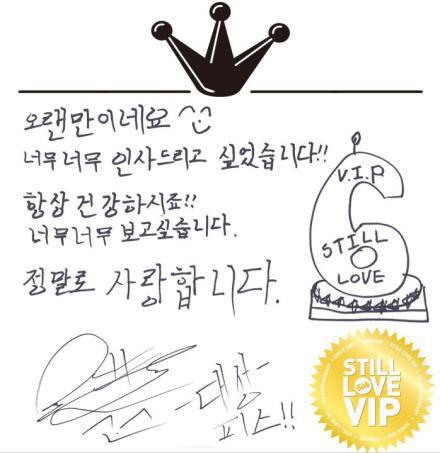 오랜만이네요 ^^
너무너무 인사드리고 싶었습니다!!
항상 건강하시죠!!
너무너무 보고싶습니다.
정말로 사랑합니다.
V.I.P
STILL
LOVE
-대성-
피스!!
STILL
LOVE
VIP